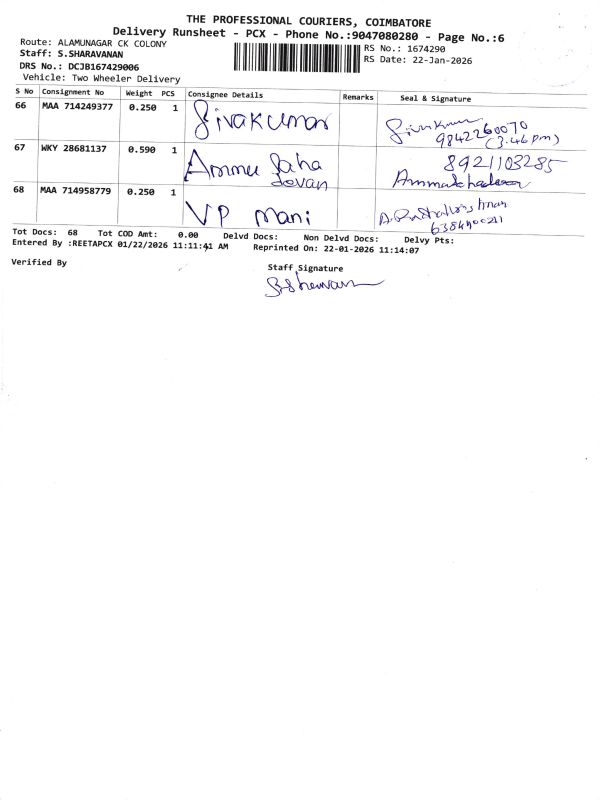 THE PROFESSIONAL COURIERS, COIMBATORE
Delivery Runsheet - PCX - Phone No.:9047080280 - Page No.:6
Route: ALAMUNAGAR CK COLONY
RS No.: 1674290
Staff: S.SHARAVANAN
RS Date: 22-Jan-2026
DRS No.: DCJB167429006
Vehicle: Two Wheeler Delivery
S No Consignment No Weight PCS Consignee Details Remarks Seal & Signature
66 MAA 714249377 0.250 1 Sivakumar
9842260070
(3.46 pm)
67 WKY 28681137 0.590 1 Ammu Saha
devan
8921103285
68 MAA 714958779 0.250 1 VP Mani
Tot Docs: 68 Tot COD Amt: 0.00 Delvd Docs: Non Delvd Docs: Delvy Pts:
Entered By :REETAPCX 01/22/2026 11:11:41 AM Reprinted On: 22-01-2026 11:14:07
Verified By
Staff Signature